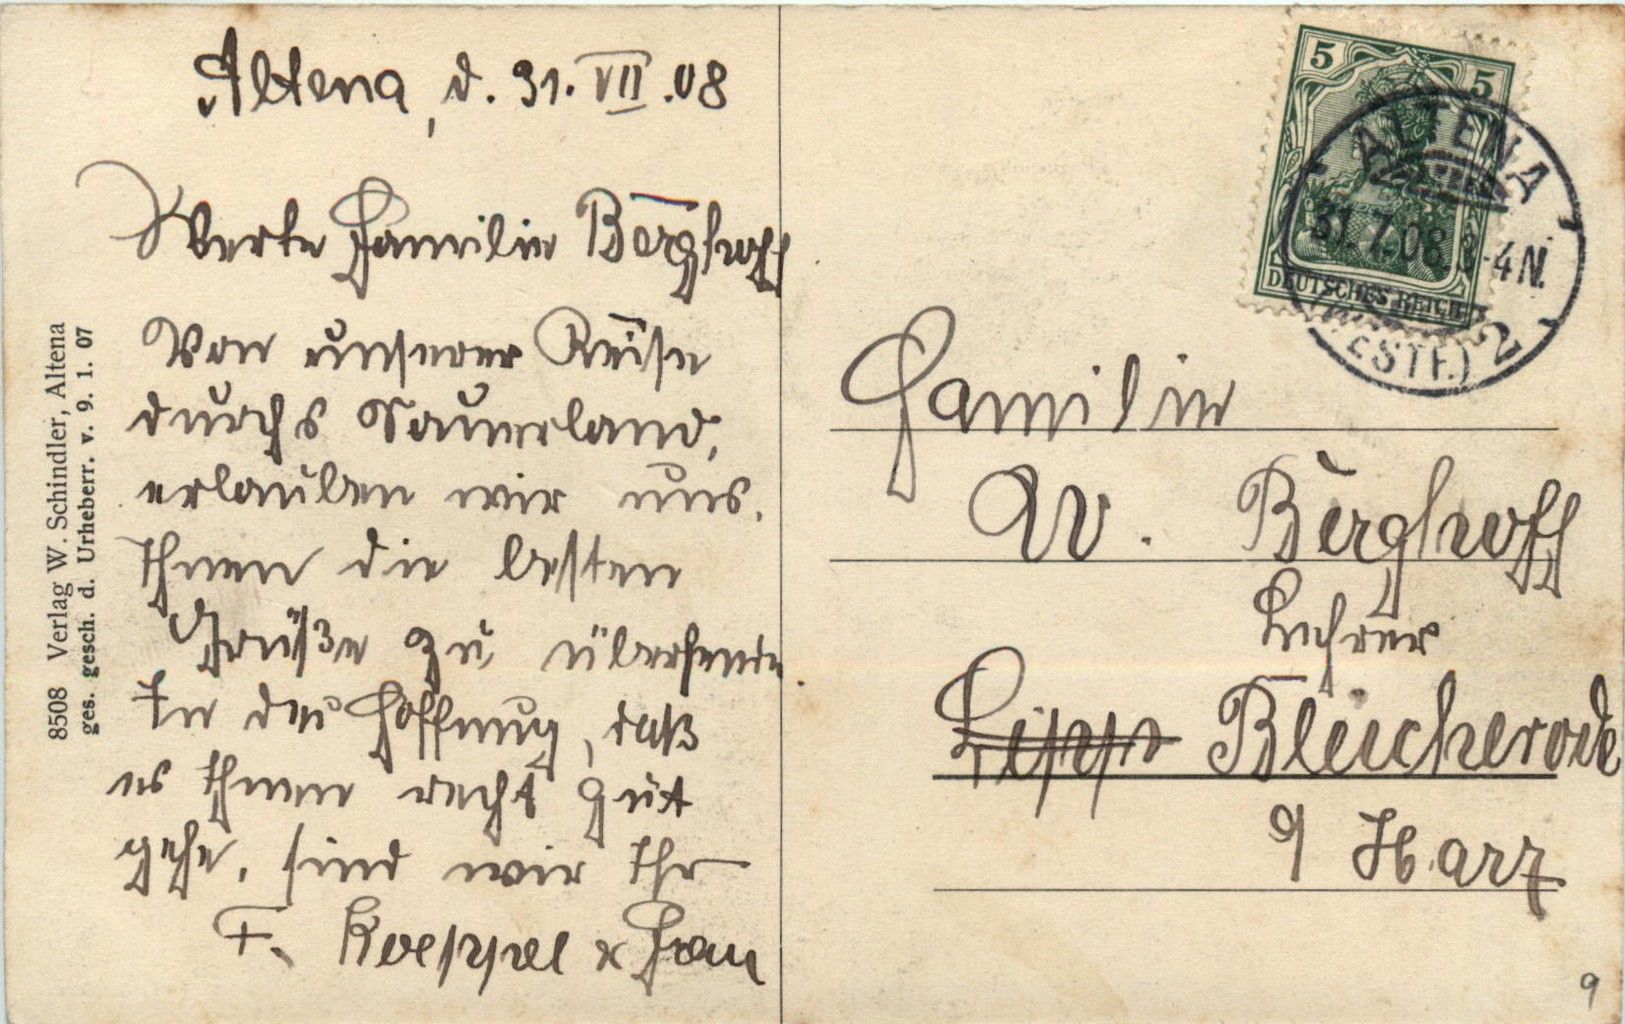 Altena, d. 31. VII. 08
Werte Familie Berghoff
Von unserer Reise
durchs Sauerland,
erlauben wir uns,
Ihnen die besten
Grüße zu übersenden
In der Hoffnung, daß
es Ihnen recht gut
gehe, sind wir Ihr
F. Koeppel & Frau
8508 Verlag W. Schindler, Altena
ges. gesch. d. Urheberr. v. 9. 1. 07
5 5
DEUTSCHES REICH
ALTENA
31.7.08.3-4N.
(WESTF.) 2
Familie
W. Berghoff
Lehrer
Bleicherode
a/ Harz
9